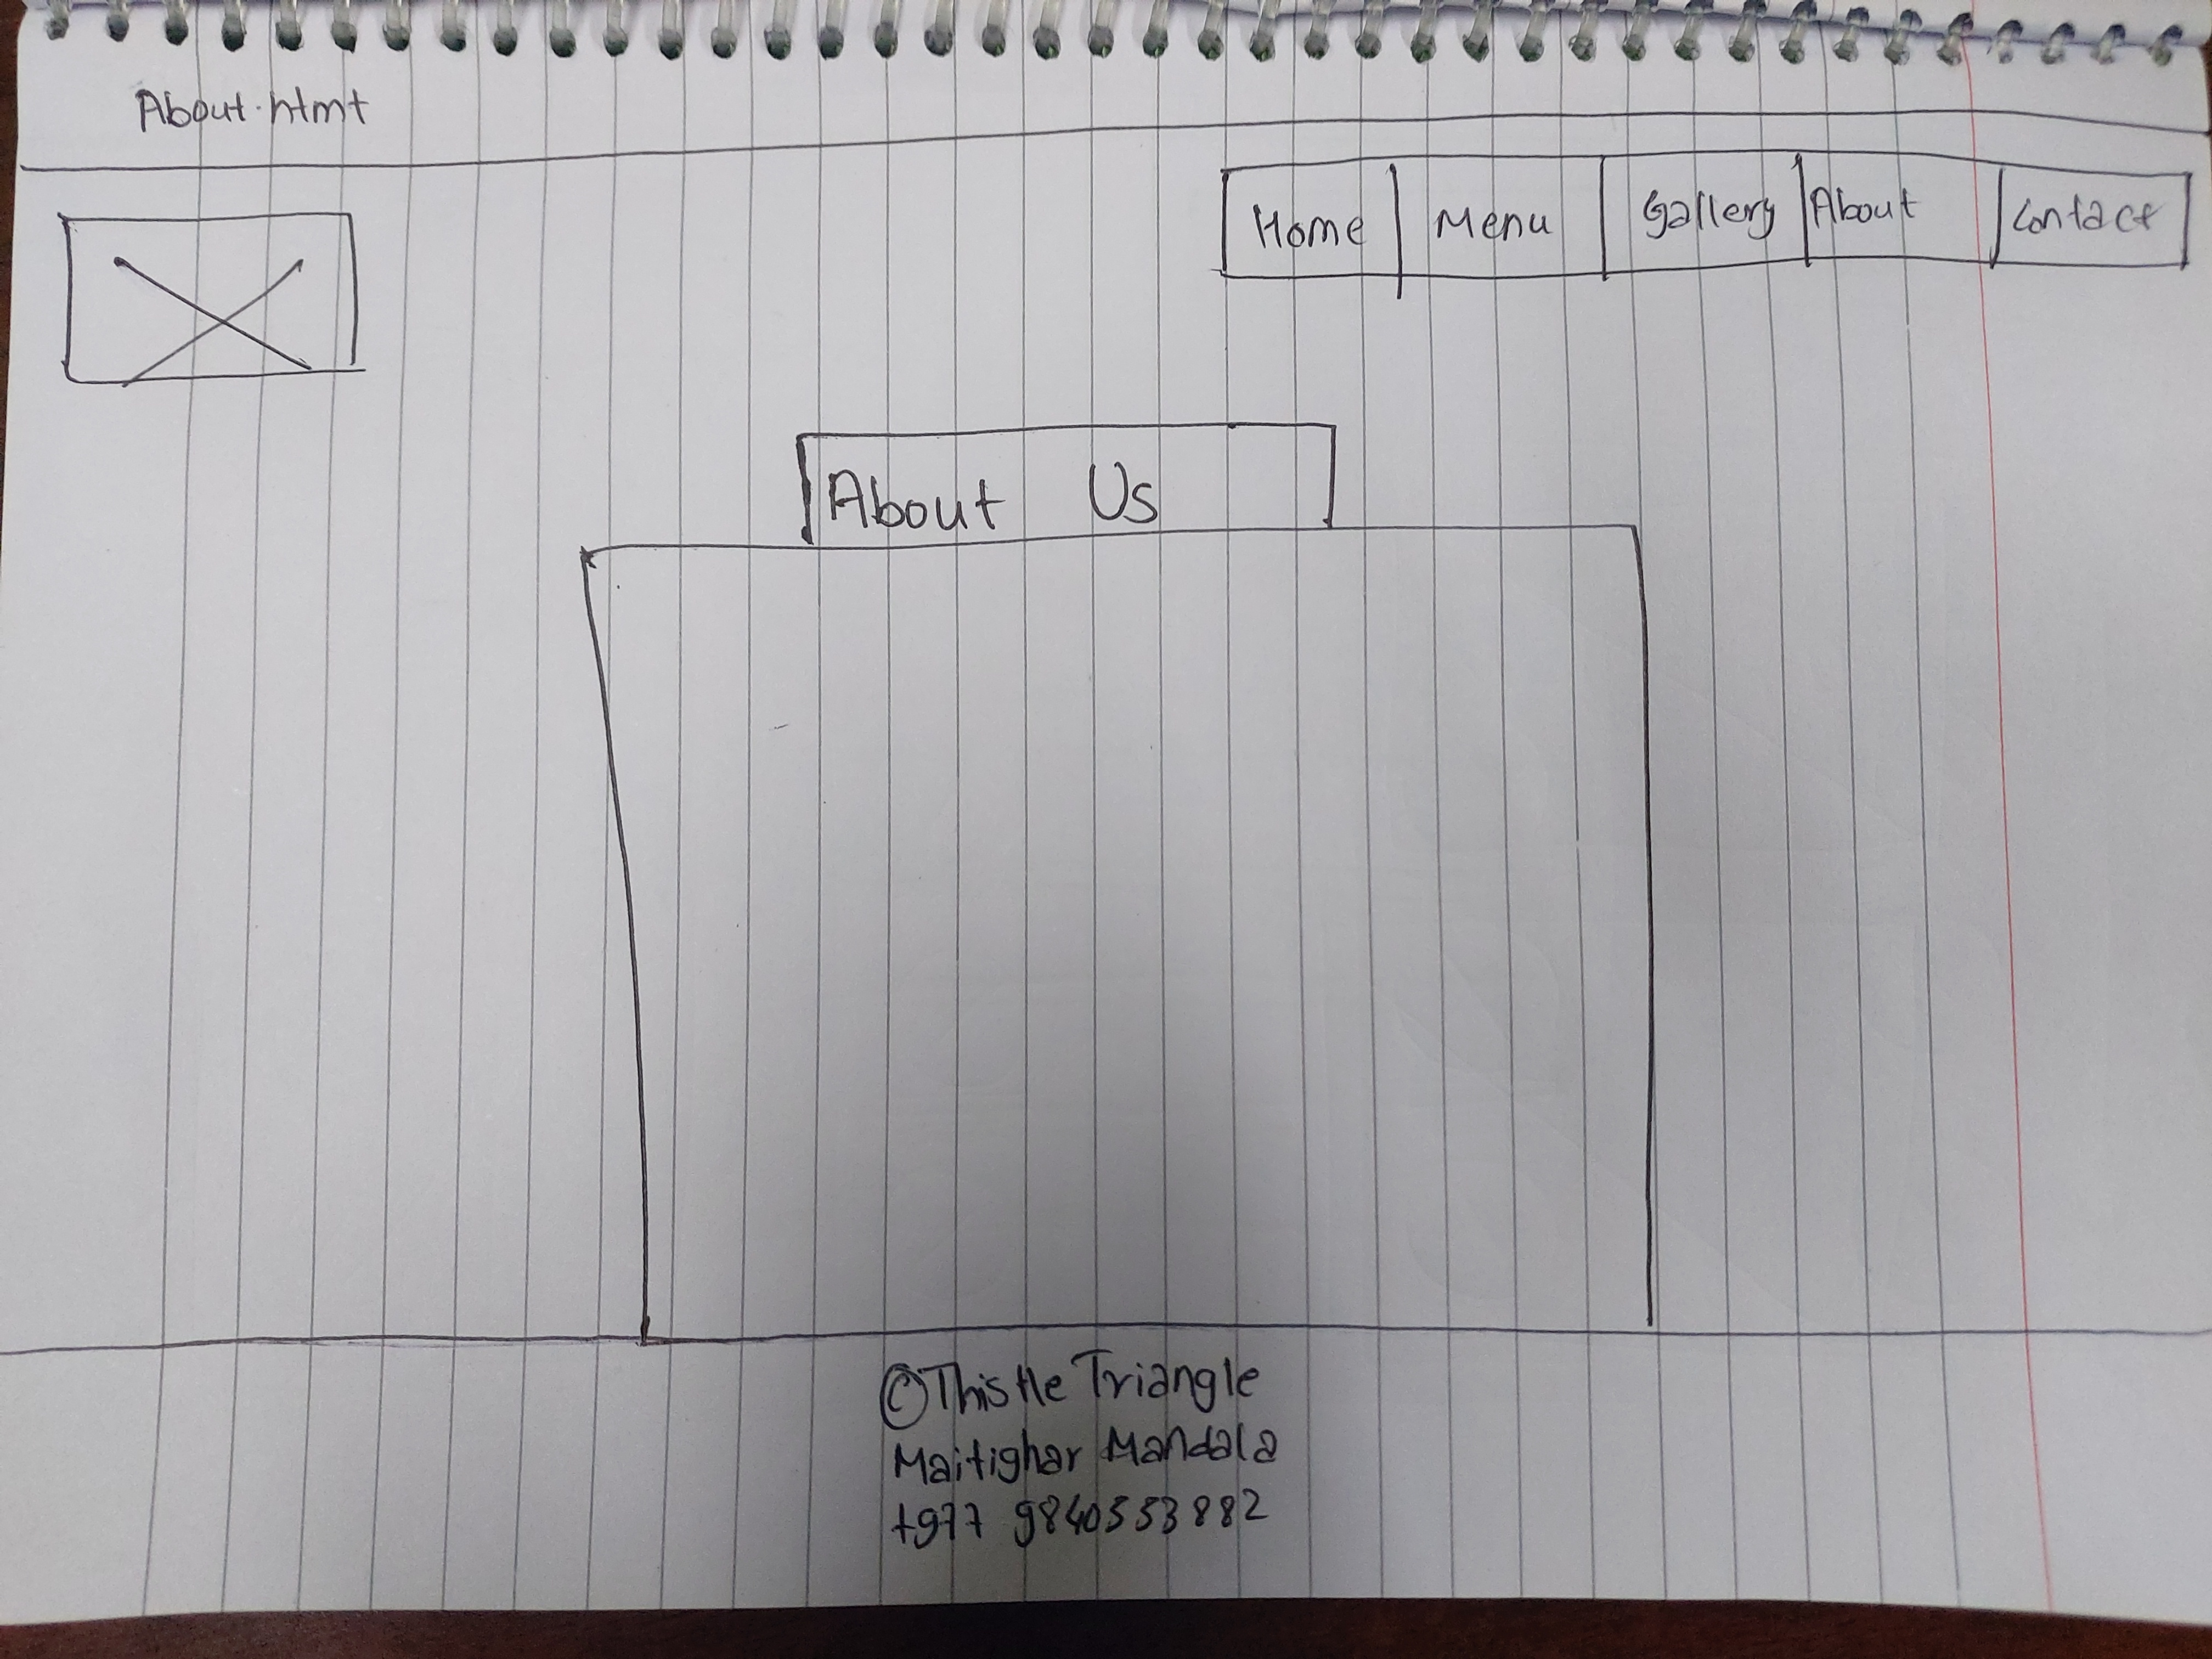 About.html
Home Menu Gallery About Contact
About Us
©Thistle Triangle
Maitighar Mandala
+977 9840553882